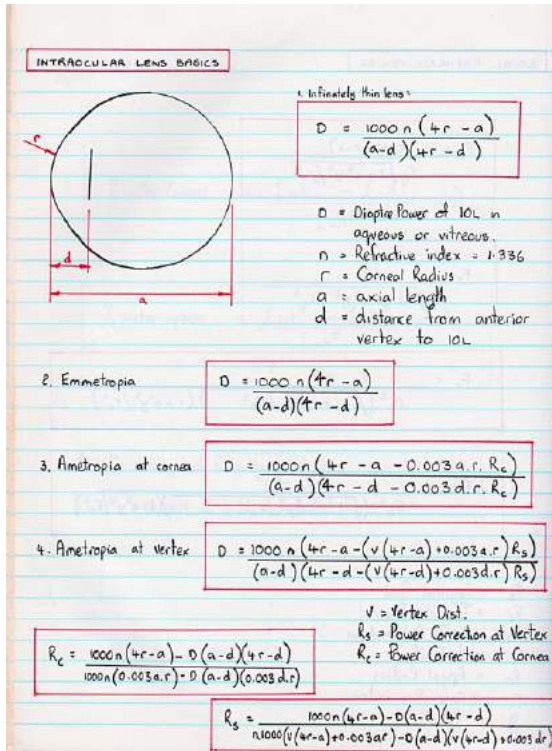 INTRAOCULAR LENS BASICS
1. Infinately thin lens:
D = 1000 n (4r - a) / (a-d)(4r - d)
r
d
a
D = Dioptre Power of IOL in
aqueous or vitreous.
n = Refractive index = 1.336
r = Corneal Radius
a = axial length
d = distance from anterior
vertex to IOL
2. Emmetropia D = 1000 n (4r - a) / (a-d)(4r - d)
3. Ametropia at cornea D = 1000n (4r - a - 0.003 a.r. Rc) / (a-d)(4r - d - 0.003 d.r. Rc)
4. Ametropia at vertex D = 1000 n (4r - a - (v(4r-a) + 0.003 a.r) Rs) / (a-d)(4r - d - (v(4r-d) + 0.003 d.r) Rs)
V = Vertex Dist.
Rs = Power Correction at Vertex
Rc = Power Correction at Cornea
Rc = 1000n (4r-a) - D(a-d)(4r-d) / 1000n (0.003 a.r) - D (a-d)(0.003 d.r)
Rs = 1000n (4r-a) - D(a-d)(4r-d) / n.1000(v(4r-a) + 0.003ar) - D(a-d)(v(4r-d) + 0.003 dr)